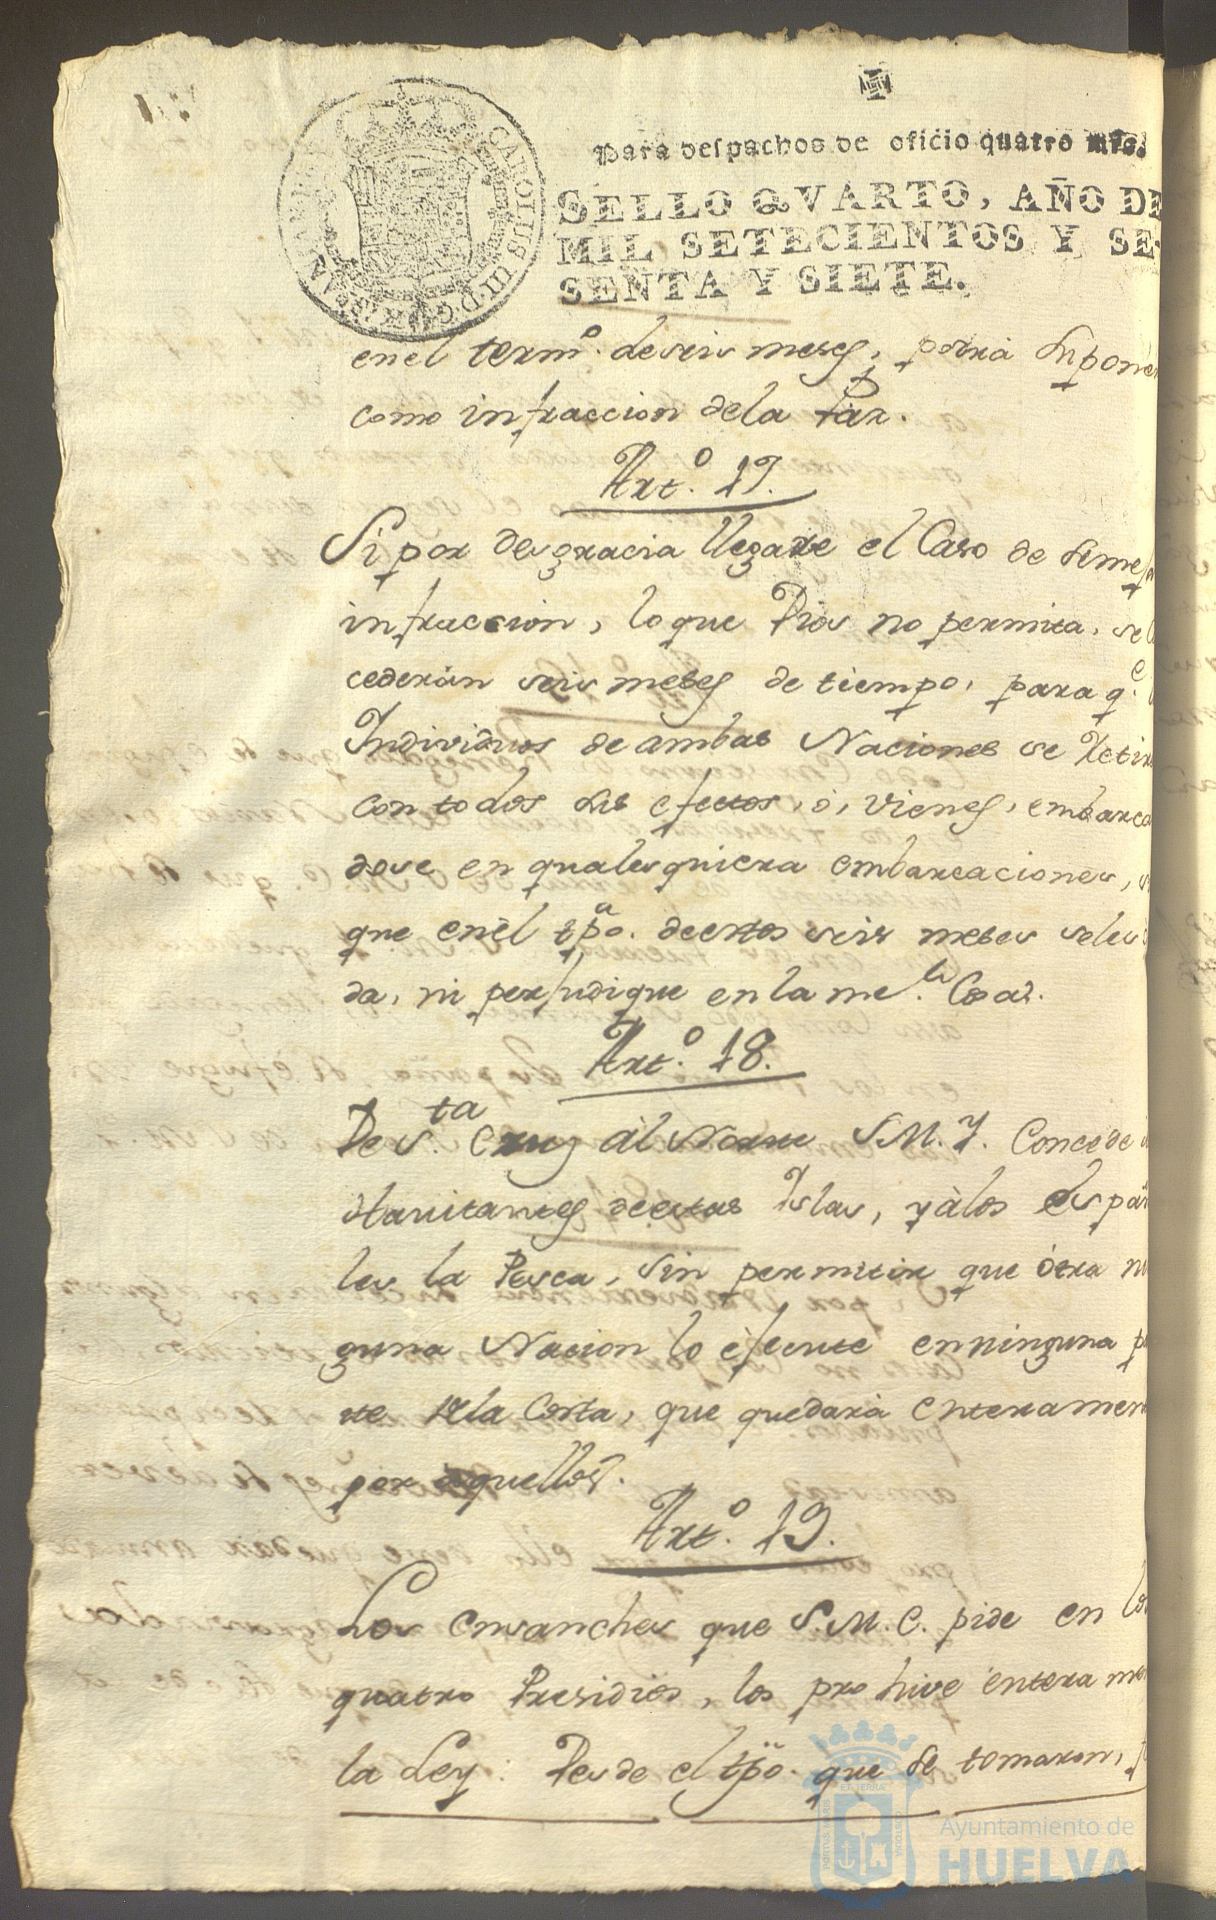 Para despachos de oficio quatro mrs.
SELLO QVARTO, AÑO DE
MIL SETECIENTOS Y SE-
SENTA Y SIETE.
CAROLUS III D.G.
enel termº. de seis meses, podrá suponer
como infraccion dela Paz.
Artº. 17.
Si por desgracia llegare el Caso de seme
infraccion, lo que Dios no permita, se
cederán seis meses de tiempo, para qe.
Individuos de ambas Naciones se retir
con todos sus efectos, ó, vienes, embarca
dose en qualesquiera embarcaciones,
que enel tpo. de estos seis meses seles
da, ni perjudique en la me.
Artº. 18.
De Sta. Cruz al Norte S.M.Y. Concede
Havitantes de estas Yslas, y à los Españ
les la Pesca, sin permitir que ótra ni
guna Nacion lo éjecute enninguna p
te dela Costa, que quedará enteramen
por aquellos.
Artº. 19.
Los ensanches que S.M.C. pide en lo
quatro Presidios, los prohive entera me
la Ley: Desde el tpo. que se tomaron,
Ayuntamiento de
HUELVA